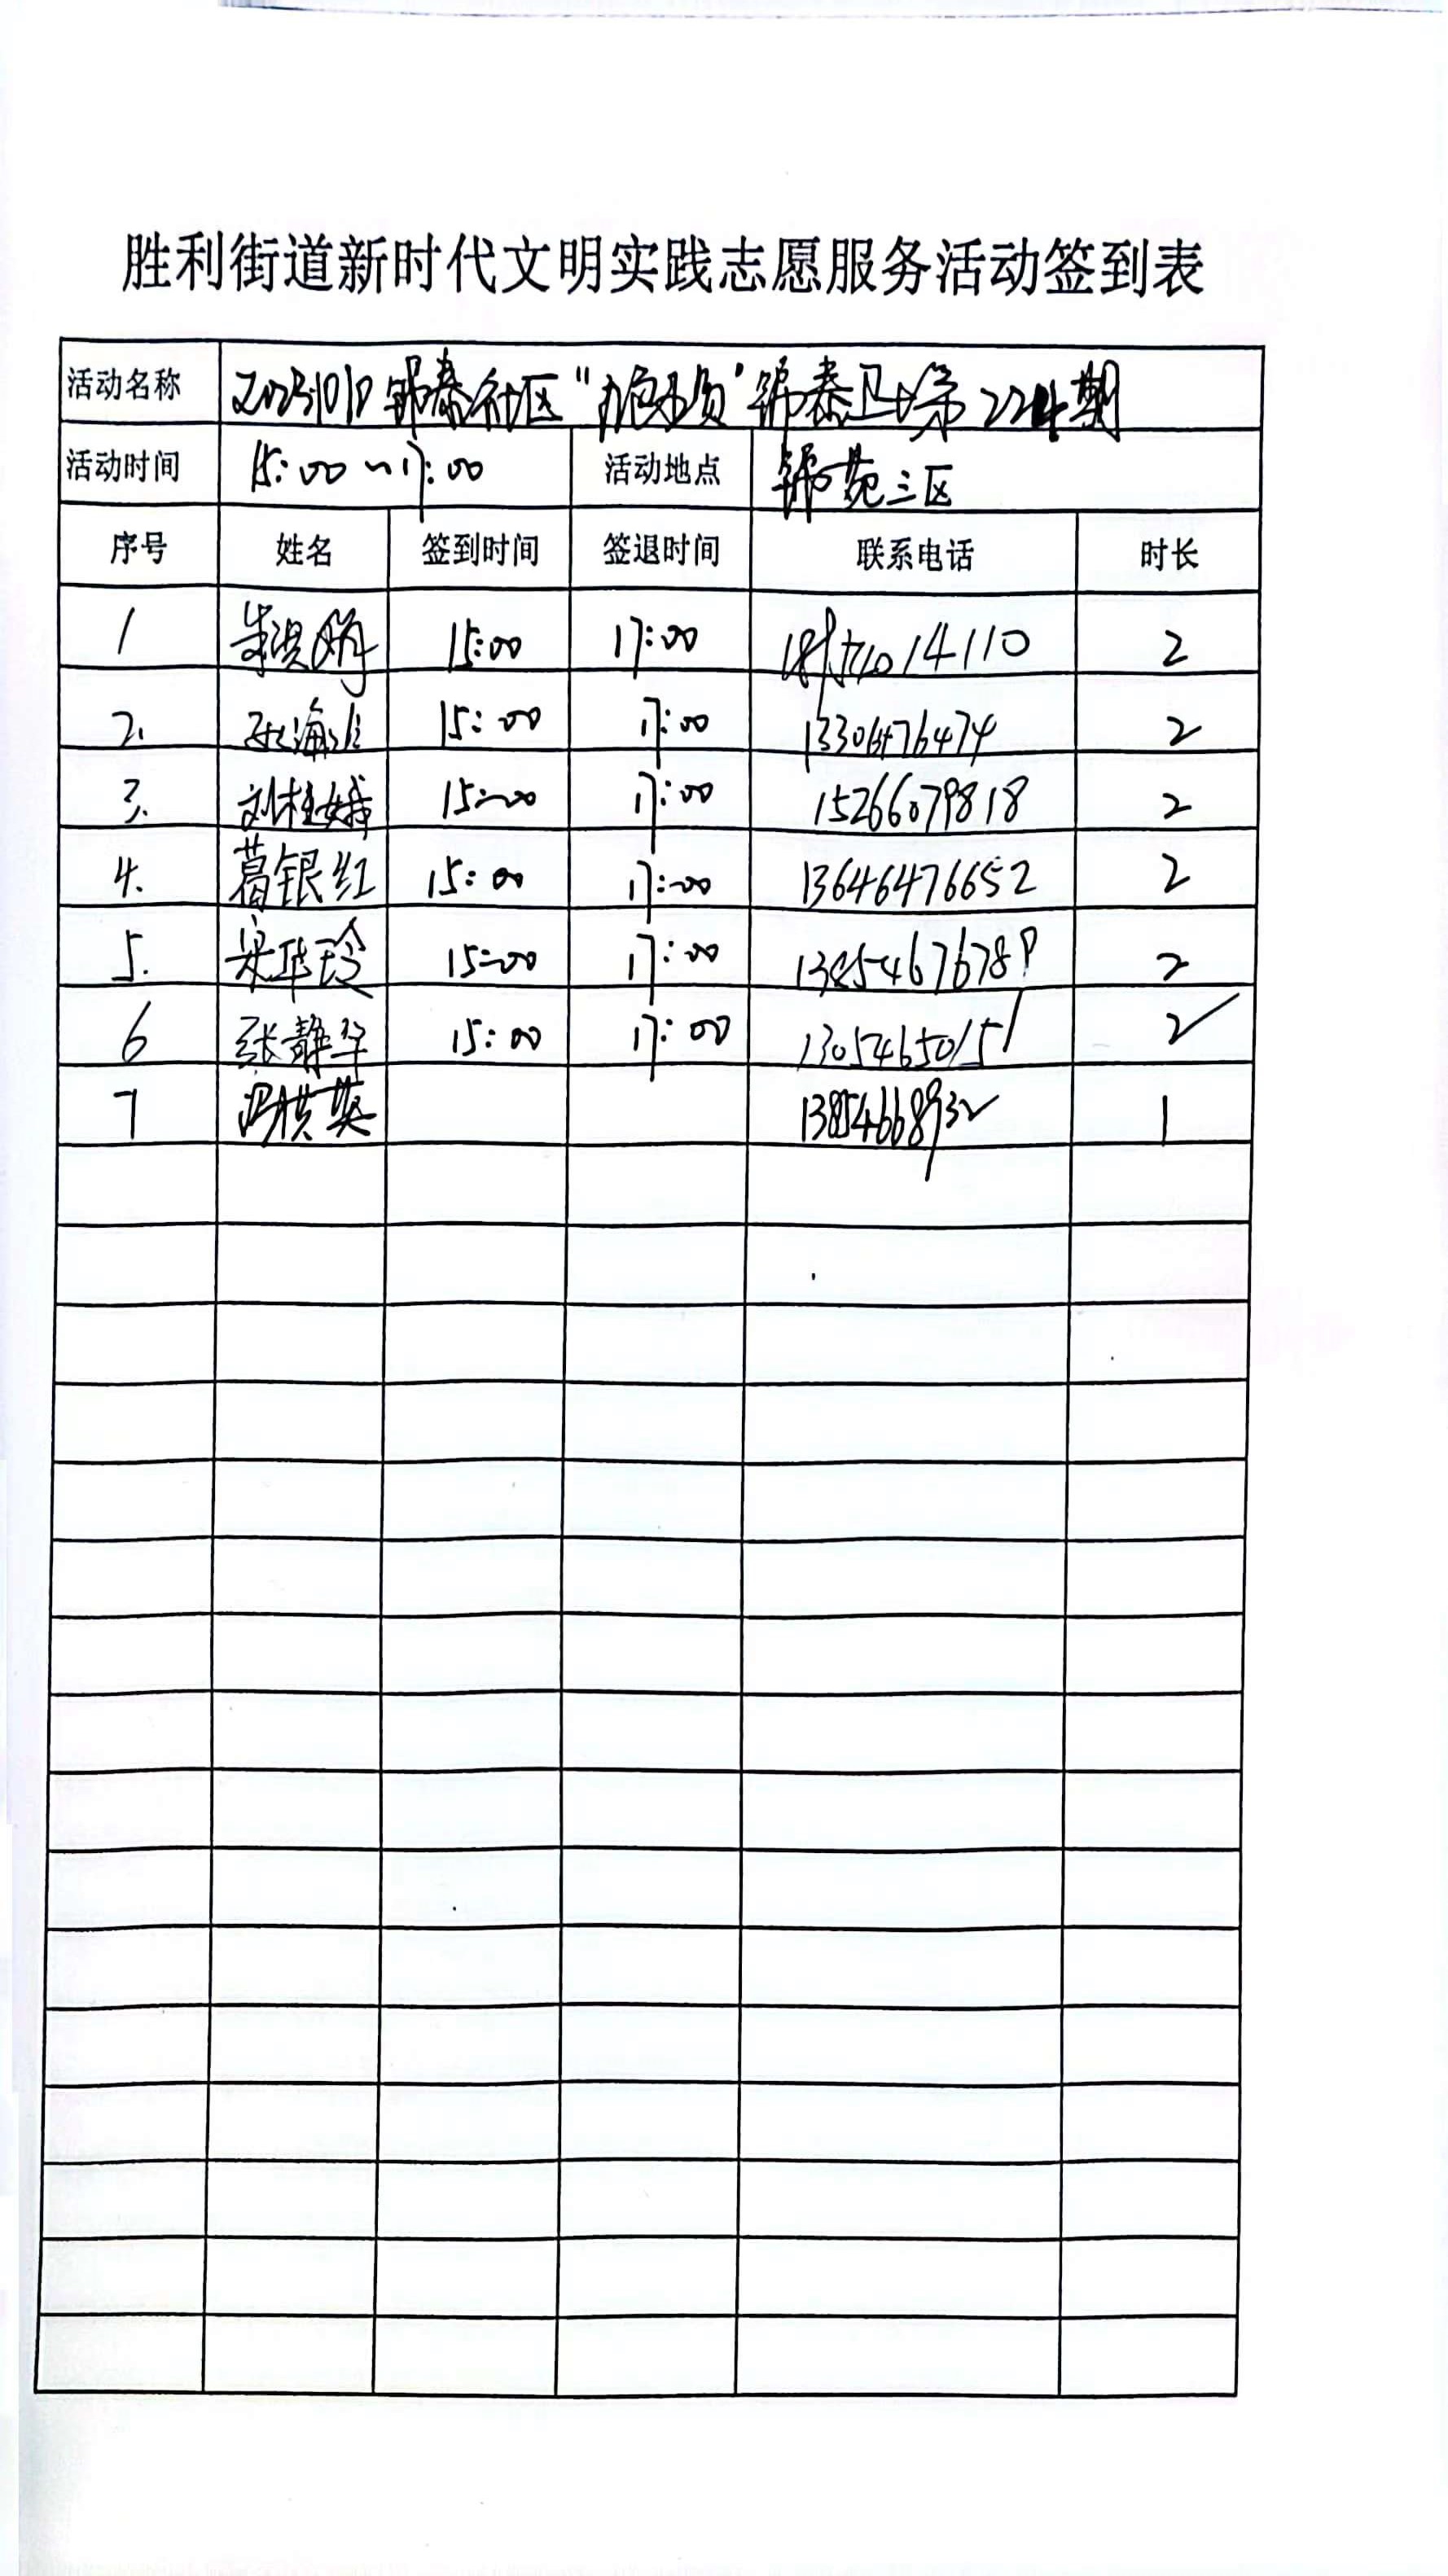 胜利街道新时代文明实践志愿服务活动签到表
活动名称 锦泰社区 锦泰卫士第224期
活动时间 15:00~17:00 活动地点 锦苑三区
序号 姓名 签到时间 签退时间 联系电话 时长
1 15:00 17:00 2
2. 15:00 17:00 2
3. 刘桂娥 15:00 17:00 15266079818 2
4. 葛银红 15:00 17:00 13646476652 2
5. 15:00 17:00 2
6 张静华 15:00 17:00 13054650151 2
7 1